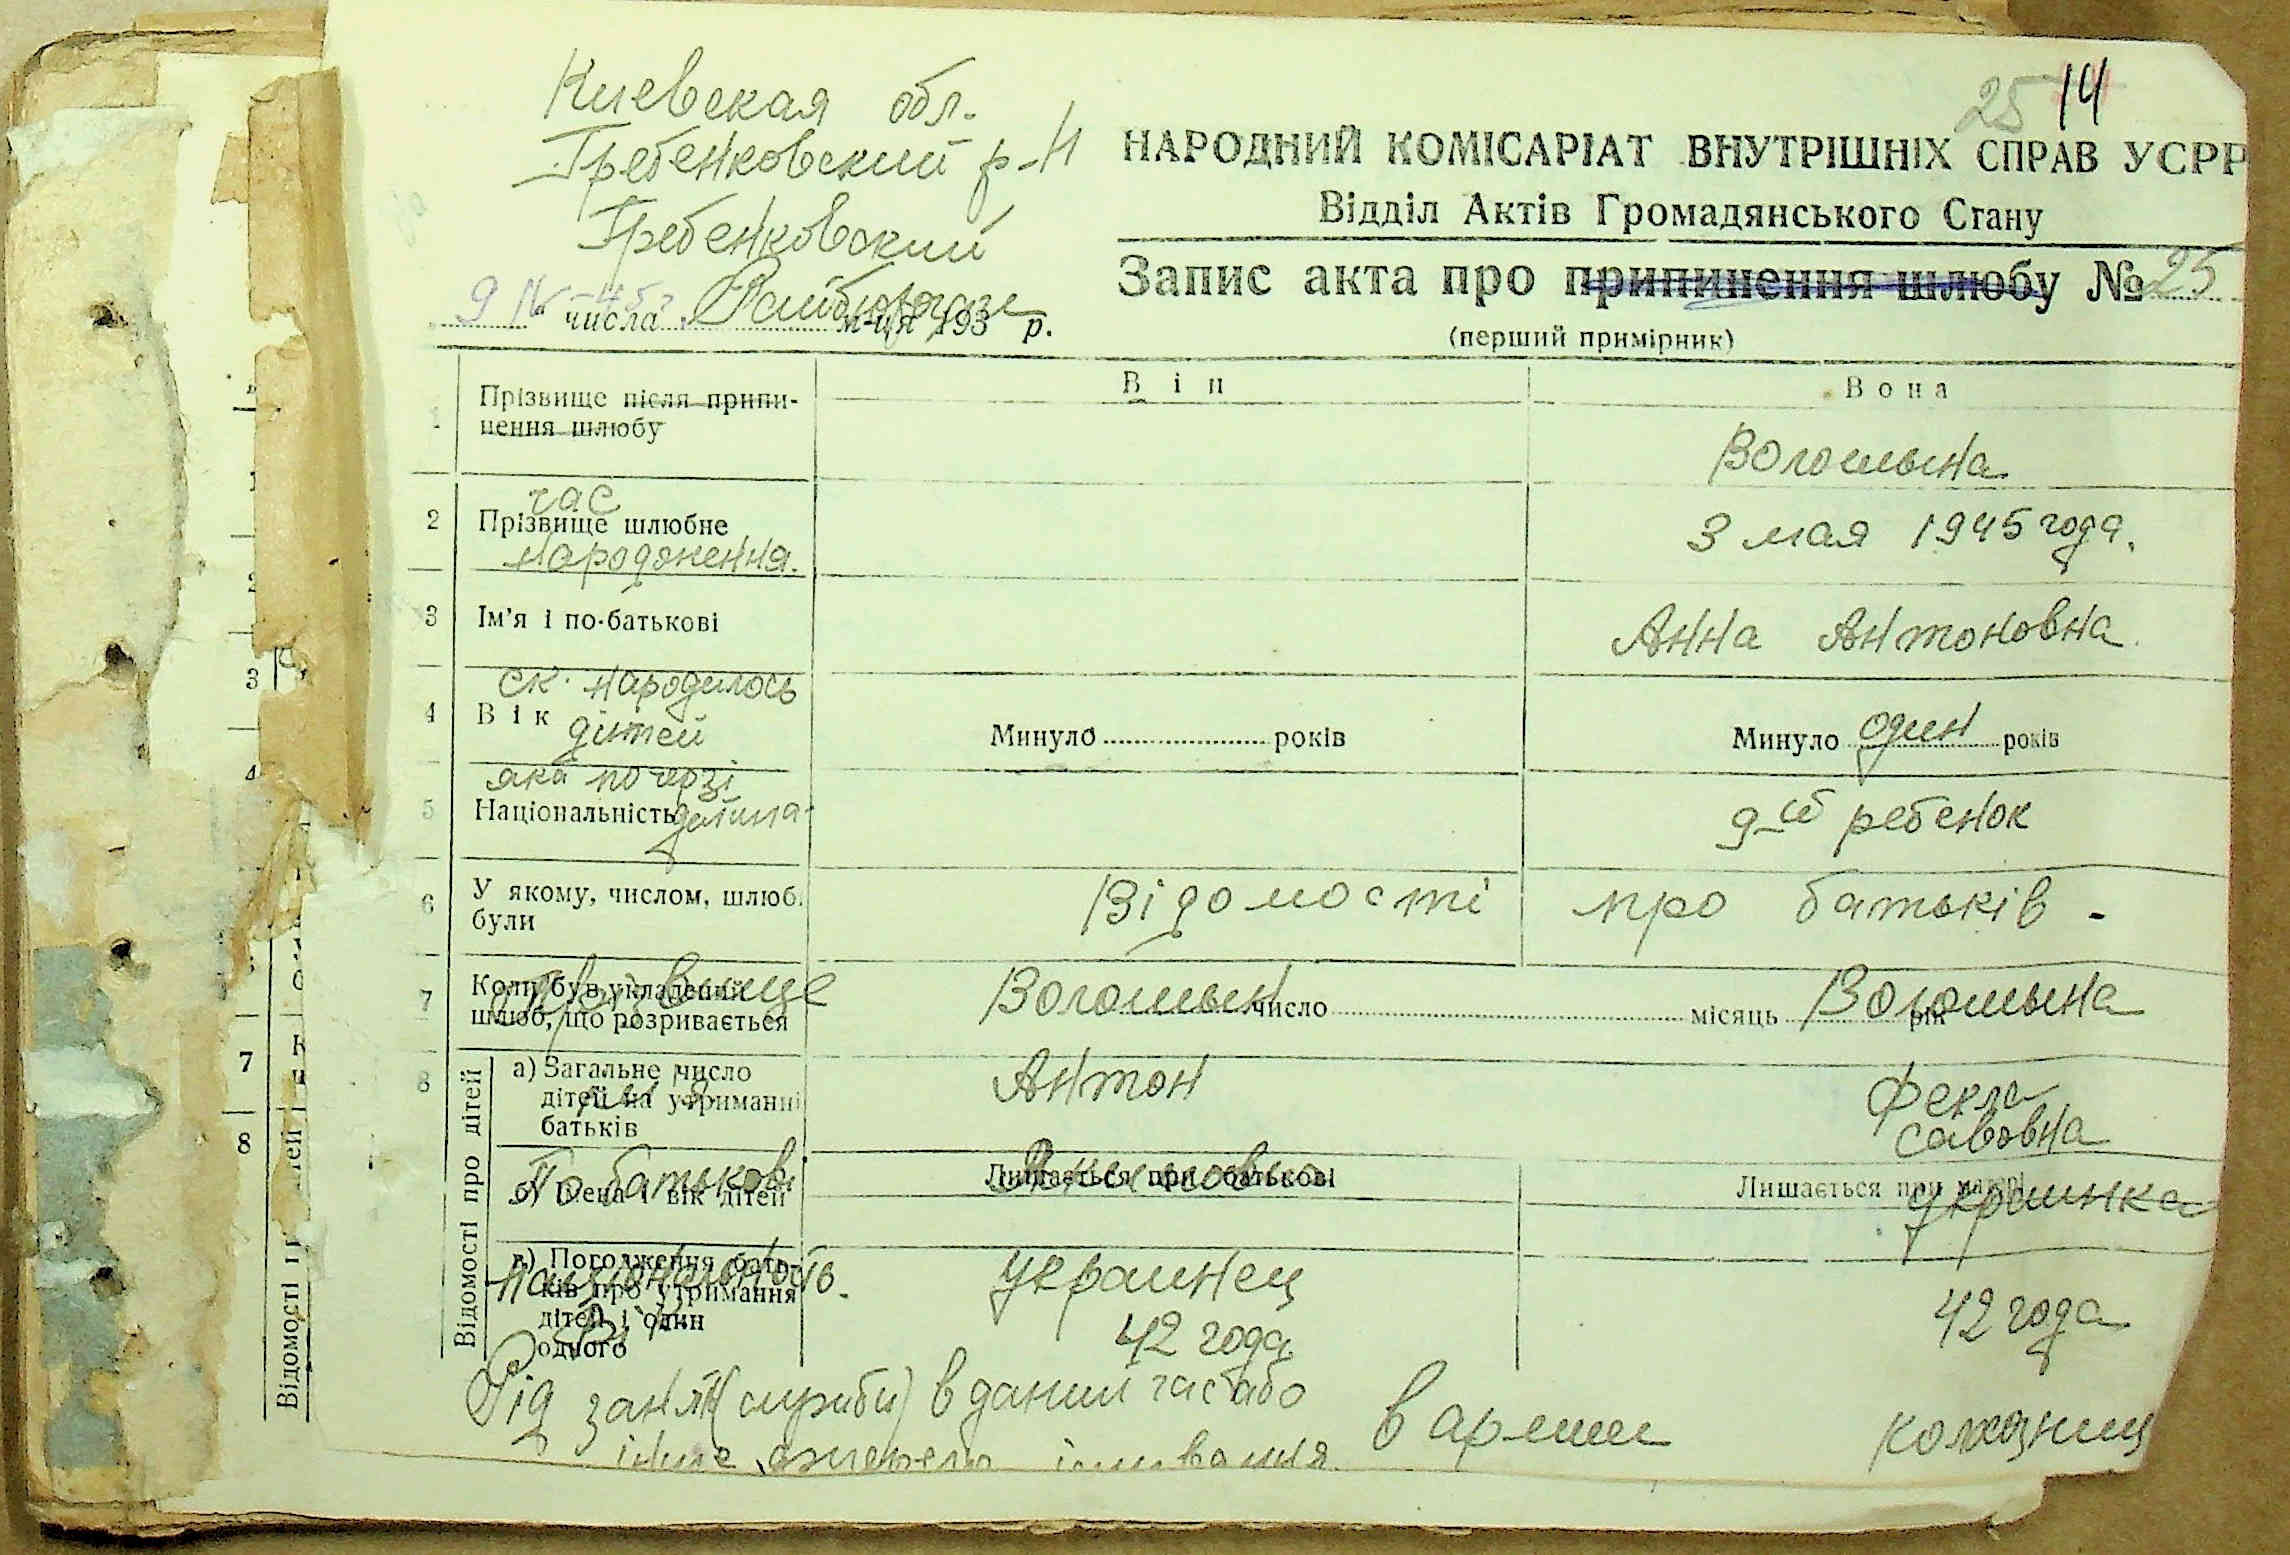 Киевская обл.
Гребенковский р-н
Гребенковский
Райбюрозагс
25 14
НАРОДНИЙ КОМІСАРІАТ ВНУТРІШНІХ СПРАВ УСРР
Відділ Актів Громадянського Стану
Запис акта про припинення шлюбу № 25
(перший примірник)
9 IV -45г. числа м-ця 193 р.
Він Вона
1 Прізвище після припи-
нення шлюбу
Волошына
час
2 Прізвище шлюбне
народження.
3 мая 1945 года.
3 Ім'я і по-батькові
Анна Антоновна
ск. народилось
4 Вік дітей
Минуло років Минуло один років
яка по черзі
5 Національність дитина-
9-ый ребенок
6 У якому, числом, шлюб.
були
Відомості про батьків -
7 Коли був укладений
шлюб, що розривається
Прізвище
Волошын число місяць рік Волошына
Відомості про дітей
8 а) Загальне число
дітей на утриманні
батьків
Антон Фекла
Савовна
б) Імена і вік дітей
По батькові
Лишається при батькові Лишається при матері
украинка
в) Погодження бать-
ків про утримання
дітей і один
одного
національність.
Вік
украинец
42 года 42 года
Рід занять (служби) в даний час або
інше джерело існування
в армии колхозниц
3
4
7 К
8
Відомості п